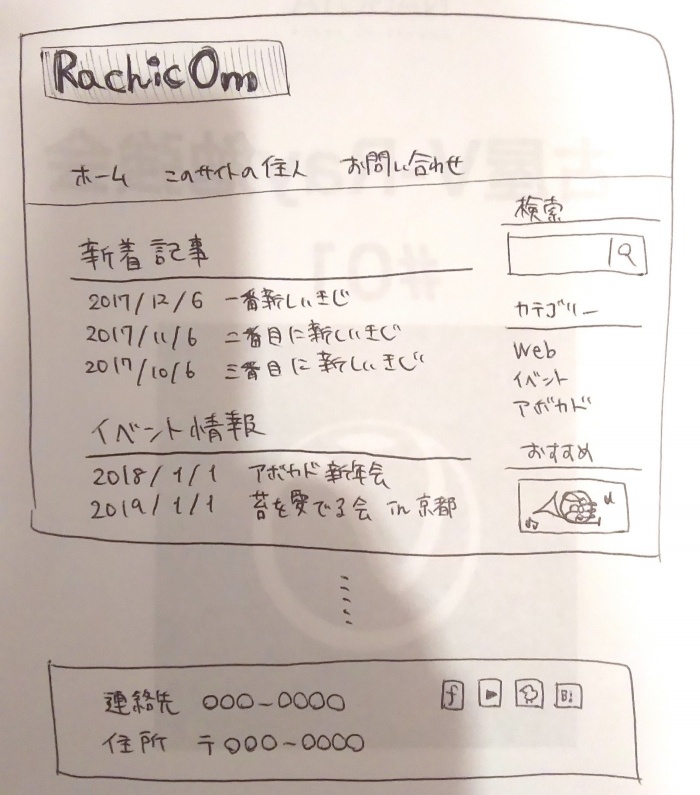 Rachic Om
ホーム このサイトの住人 お問い合わせ
新着記事
2017/12/6 一番新しいきじ
2017/11/6 二番目に新しいきじ
2017/10/6 三番目に新しいきじ
イベント情報
2018/1/1 アボカド新年会
2019/1/1 苔を愛でる会 in 京都
検索
カテゴリー
Web
イベント
アボカド
おすすめ
連絡先 000-0000
住所 〒000-0000
f
B!
#01